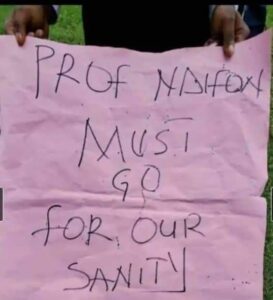 PROF NDIFON
MUST
GO
FOR OUR
SANITY